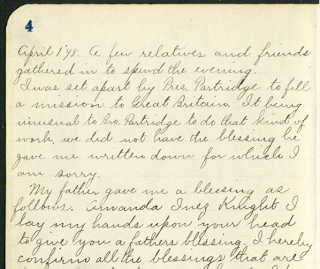 4
April 1, '98. A few relatives and friends
gathered in to spend the evening.
I was set apart by Pres. Partridge to fill
a mission to Great Britain. It being
unusual to Bro. Partridge to do that kind of
work, we did not have the blessing he
gave me written down for which I
am sorry.
My father gave me a blessing as
follows. Amanda Inez Knight I
lay my hands upon your head
to give you a fathers blessing. I hereby
confirm all the blessings that are